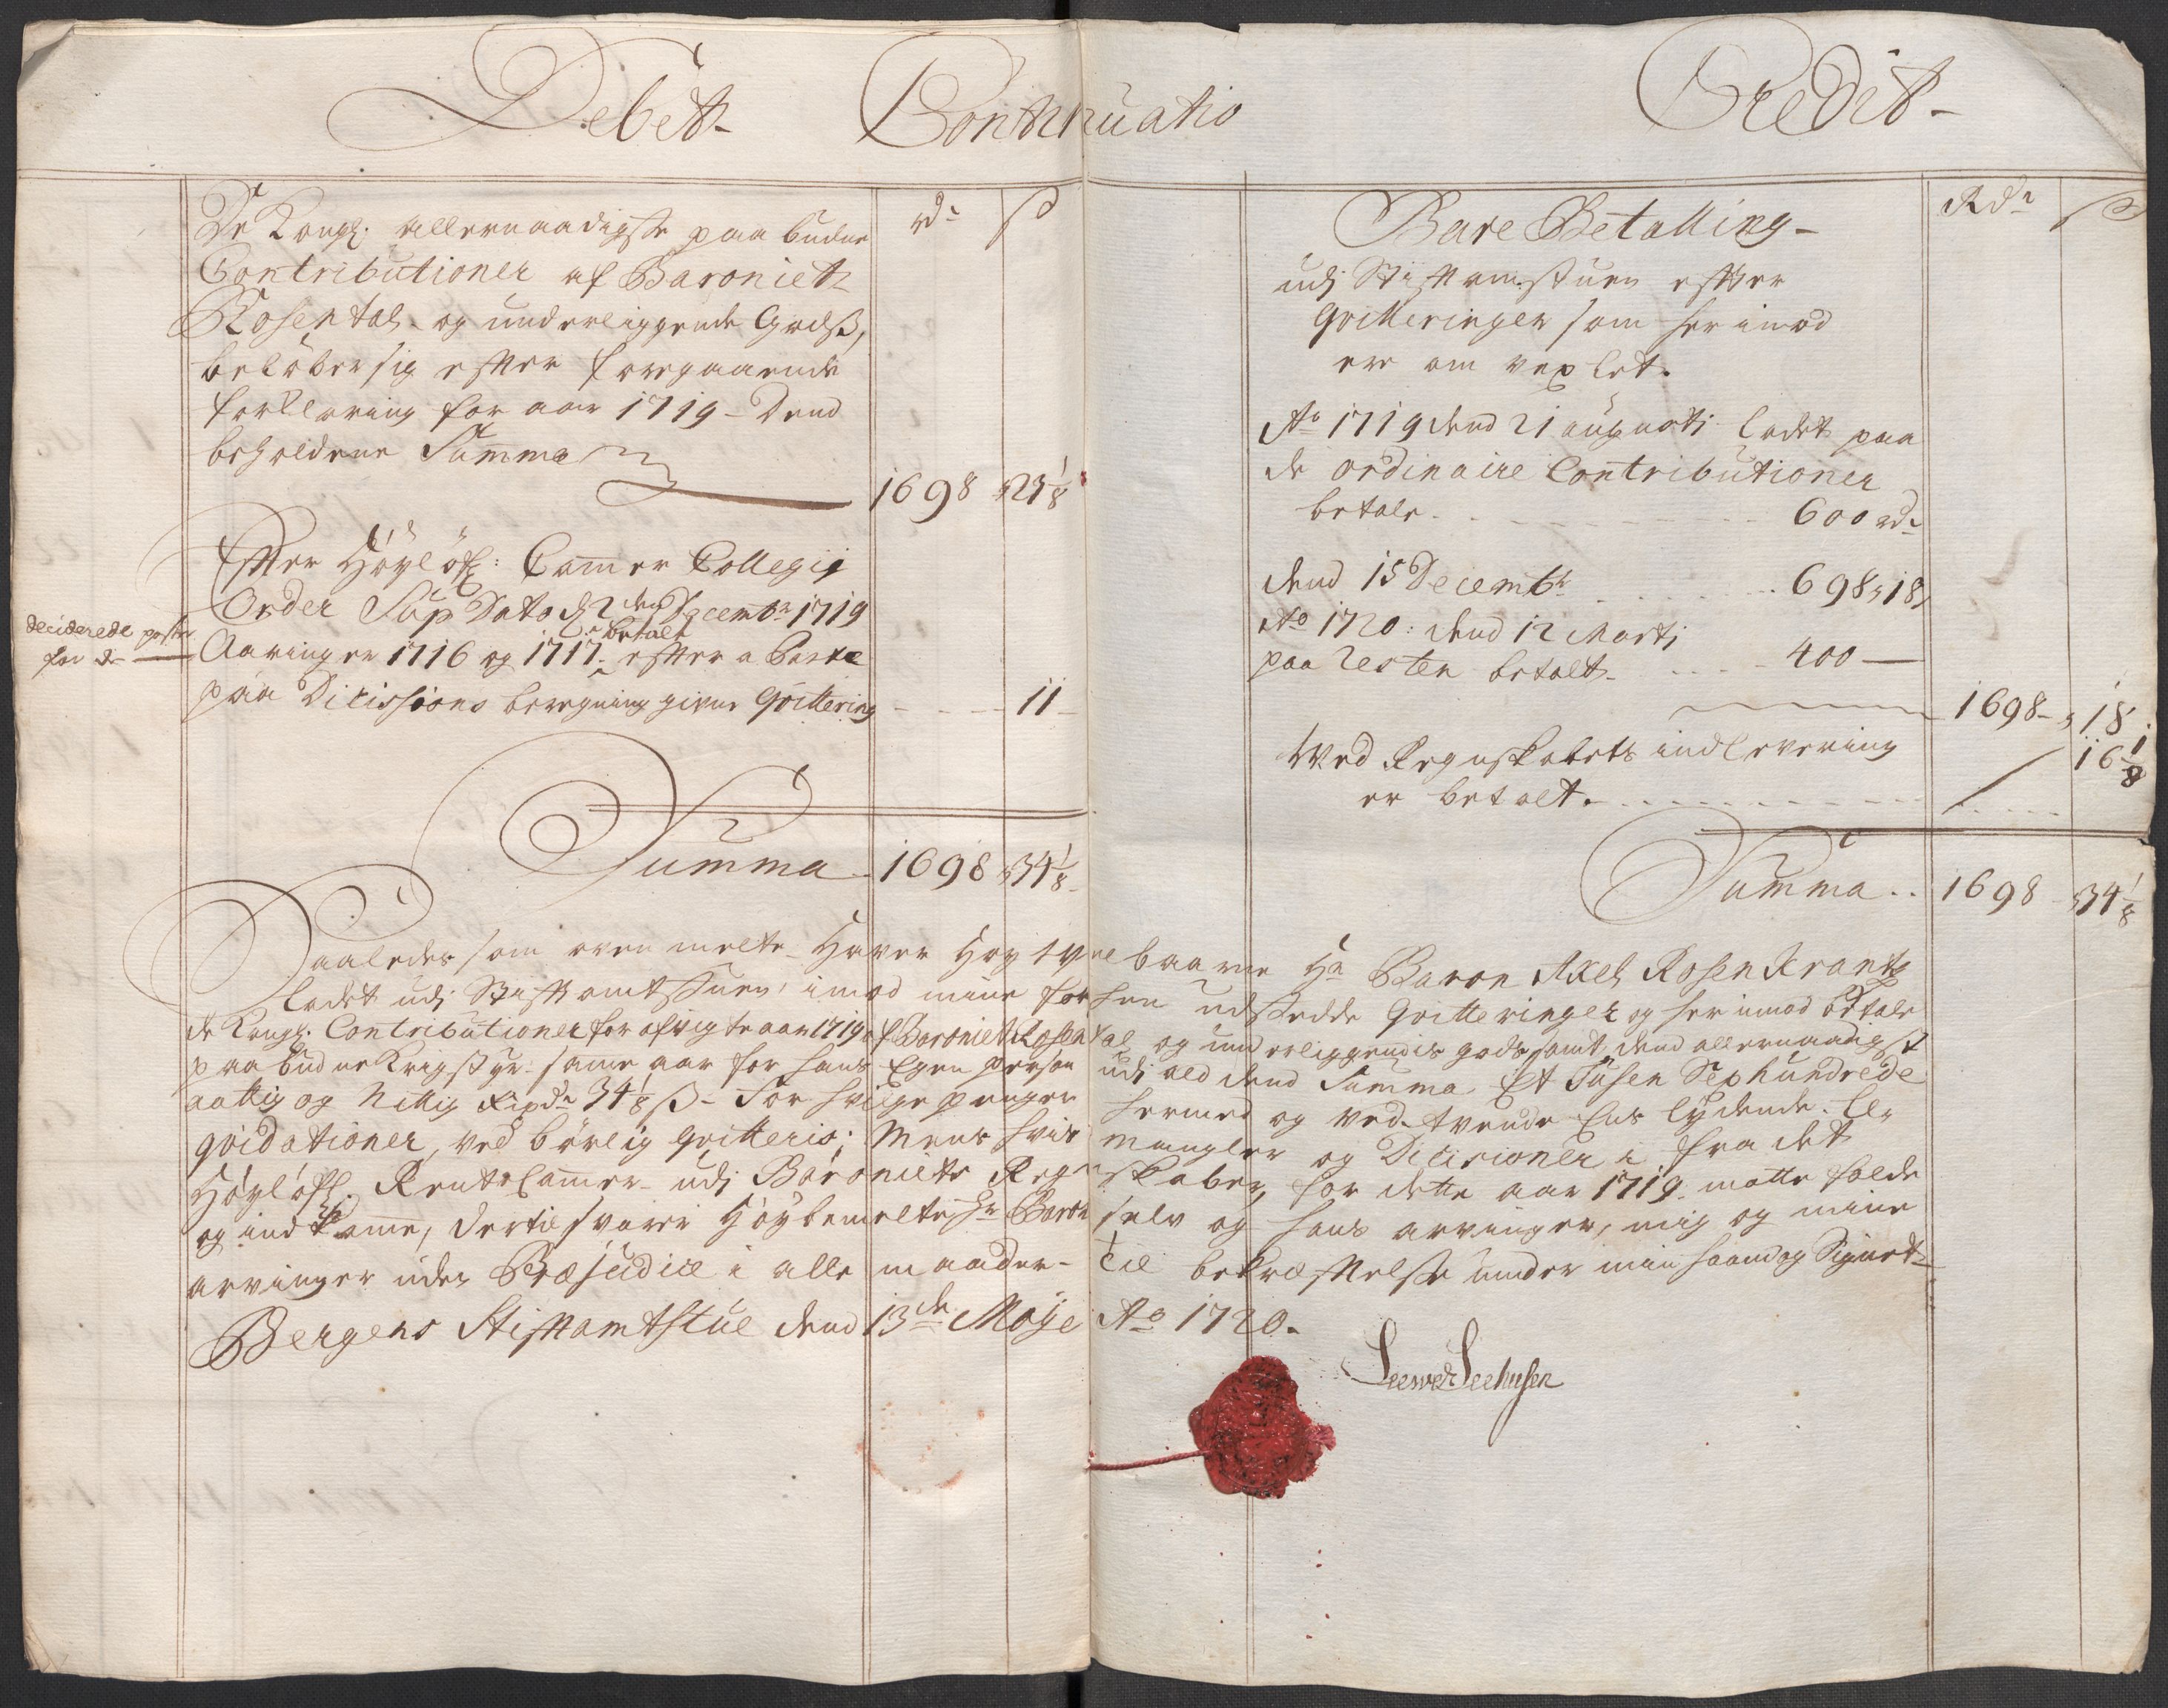 Debet Continuatio Credit
rdr ß
De Kongl. allernaadigste paabudne
Contributioner af Baroniet
Rosentals og underliggende Godtz,
beløber sig effter foregaaende
forklaring for aar 1719 dend
beholdene Summa
1698 23 1/8
Effter Höylöfl: Cammer Collegij
Order Sup Dato d 2 den Decembr 1719
deciderede poster
for de
Aaringer 1716 og 1717 betalt effter a parte
paa Dicisions beregning givne Qvittering 11
Summa 1698 34 1/8
Rdr ß
Bare Betalling
udj Stiftamstuen effter
Qvitteringer som her imod
ere om vexlet.
Ao 1719 dend 21 augusti ladet paa
de ordinaire Contributioner
betale 600 rdr
dend 15 Decembr 698, 18
Ao 1720: dend 12 Marti
paa resten betalt 400
1698 18
Wed Regnskabets indlevering
er betalt 16 1/8
Summa 1698 34 1/8
Saaledes som oven melte Haver Höy og velbaarne Hr Baron Axel Rosenkrantz
ladet udj Stiftamtstuen, imod mine forhen udstedde Qvitteringer og her imod betale
de Kongl. Contributioner for afvigte aar 1719 af Baroniet Rosental og underliggendes gods, samt dend allernaadigst
paabudne Krigstyr same aar for hans Egen person udi ald dend Summa Et Tusen Sexhundrede
aattig og Nittig Rixdr 34 1/8 ß - For hvilge penger hermed og ved tvende Ens lydende. le-
qvidationer, ved börlig Qvitteris; Mens hvis mangler og Dicisioner i fra det
Höylöfl. Rentecammer udj Baroniets Regnskaber, for dette aar 1719 motte falde
og indkomme, dertil svarer Höybemelte Hr Baron selv og hans arvinger, mig og mine
arvinger uden Præjudice i alle maader. Til bekreftelse under min haand og Signet
Bergens Stiftamtstue dend 13de Maje Ao 1720.
Seewer Seehusen